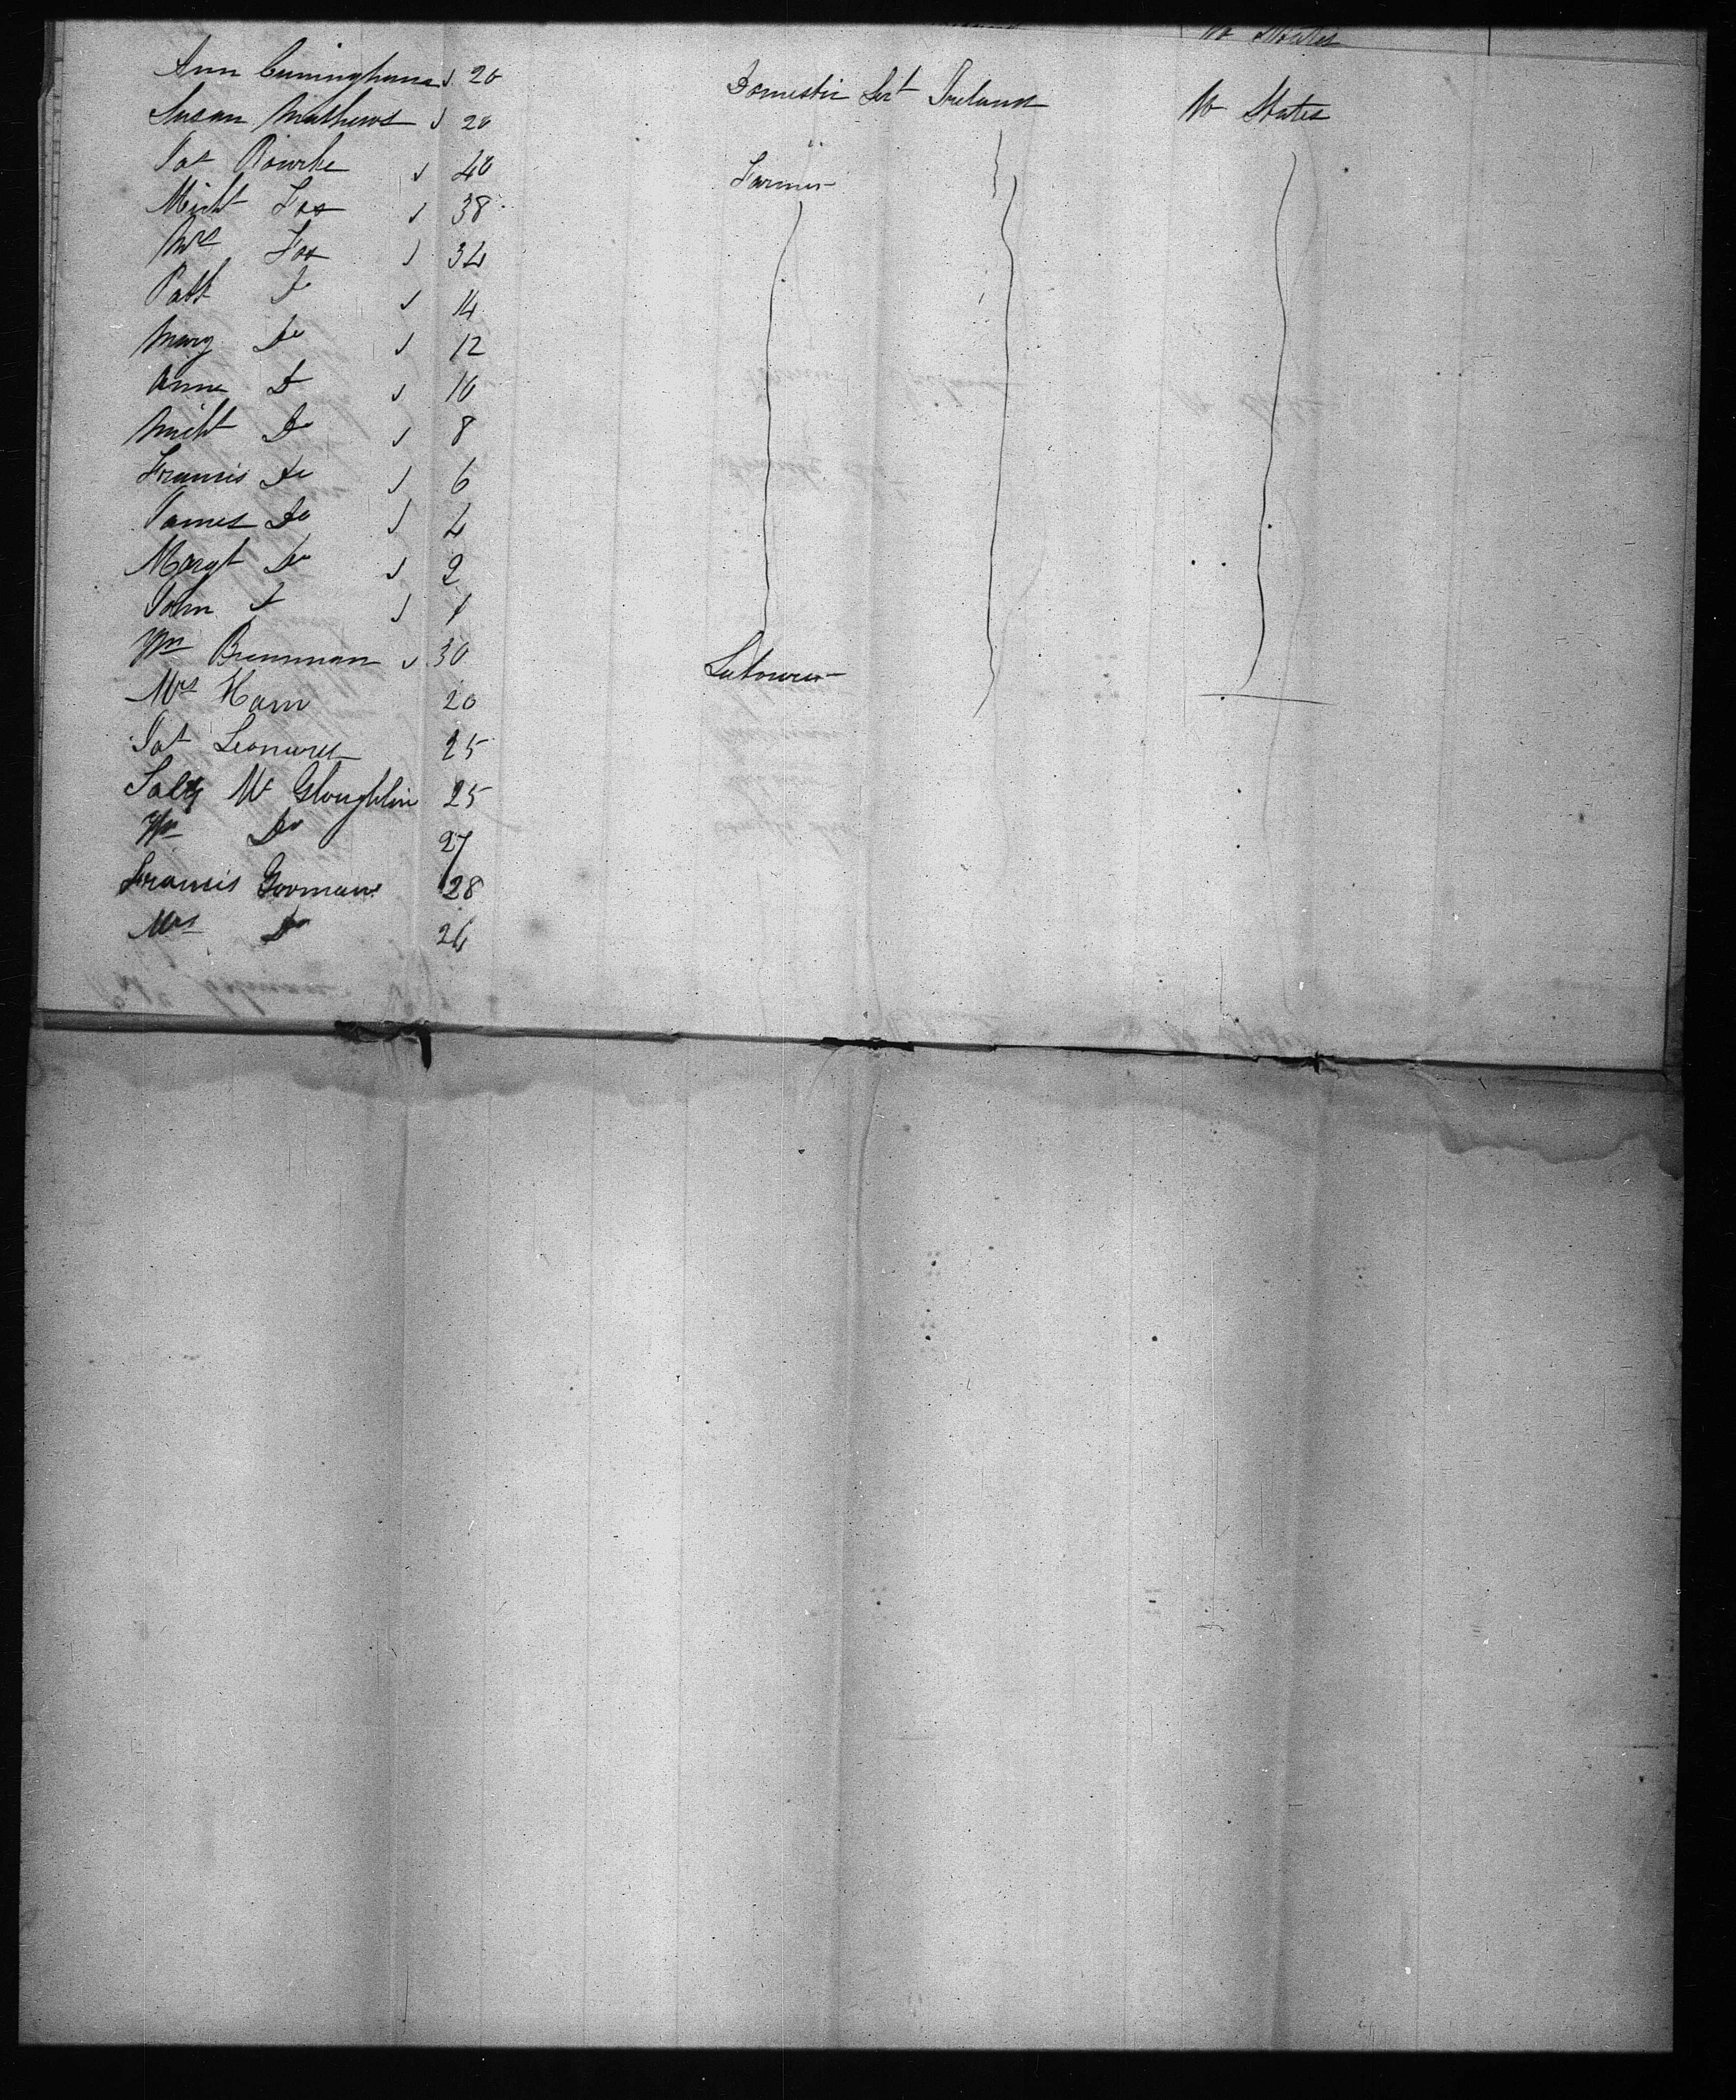 U States
Ann Cuninghame 20 Domestic Sert Ireland U States
Susan Mathews 20
Pat Rourke 40 Farmer
Michl Fox 38
Mrs Fox 34
Patt Do 14
Mary Do 12
Anne Do 10
Michl Do 8
Francis Do 6
James Do 4
Margt Do 2
John Do 1
Wm Brennnan 30 Labourer
Mrs Ham 20
Pat Leonard 25
Sally Mc Gloughlin 25
Wm Do 27
Francis Gorman 28
Mrs Do 26